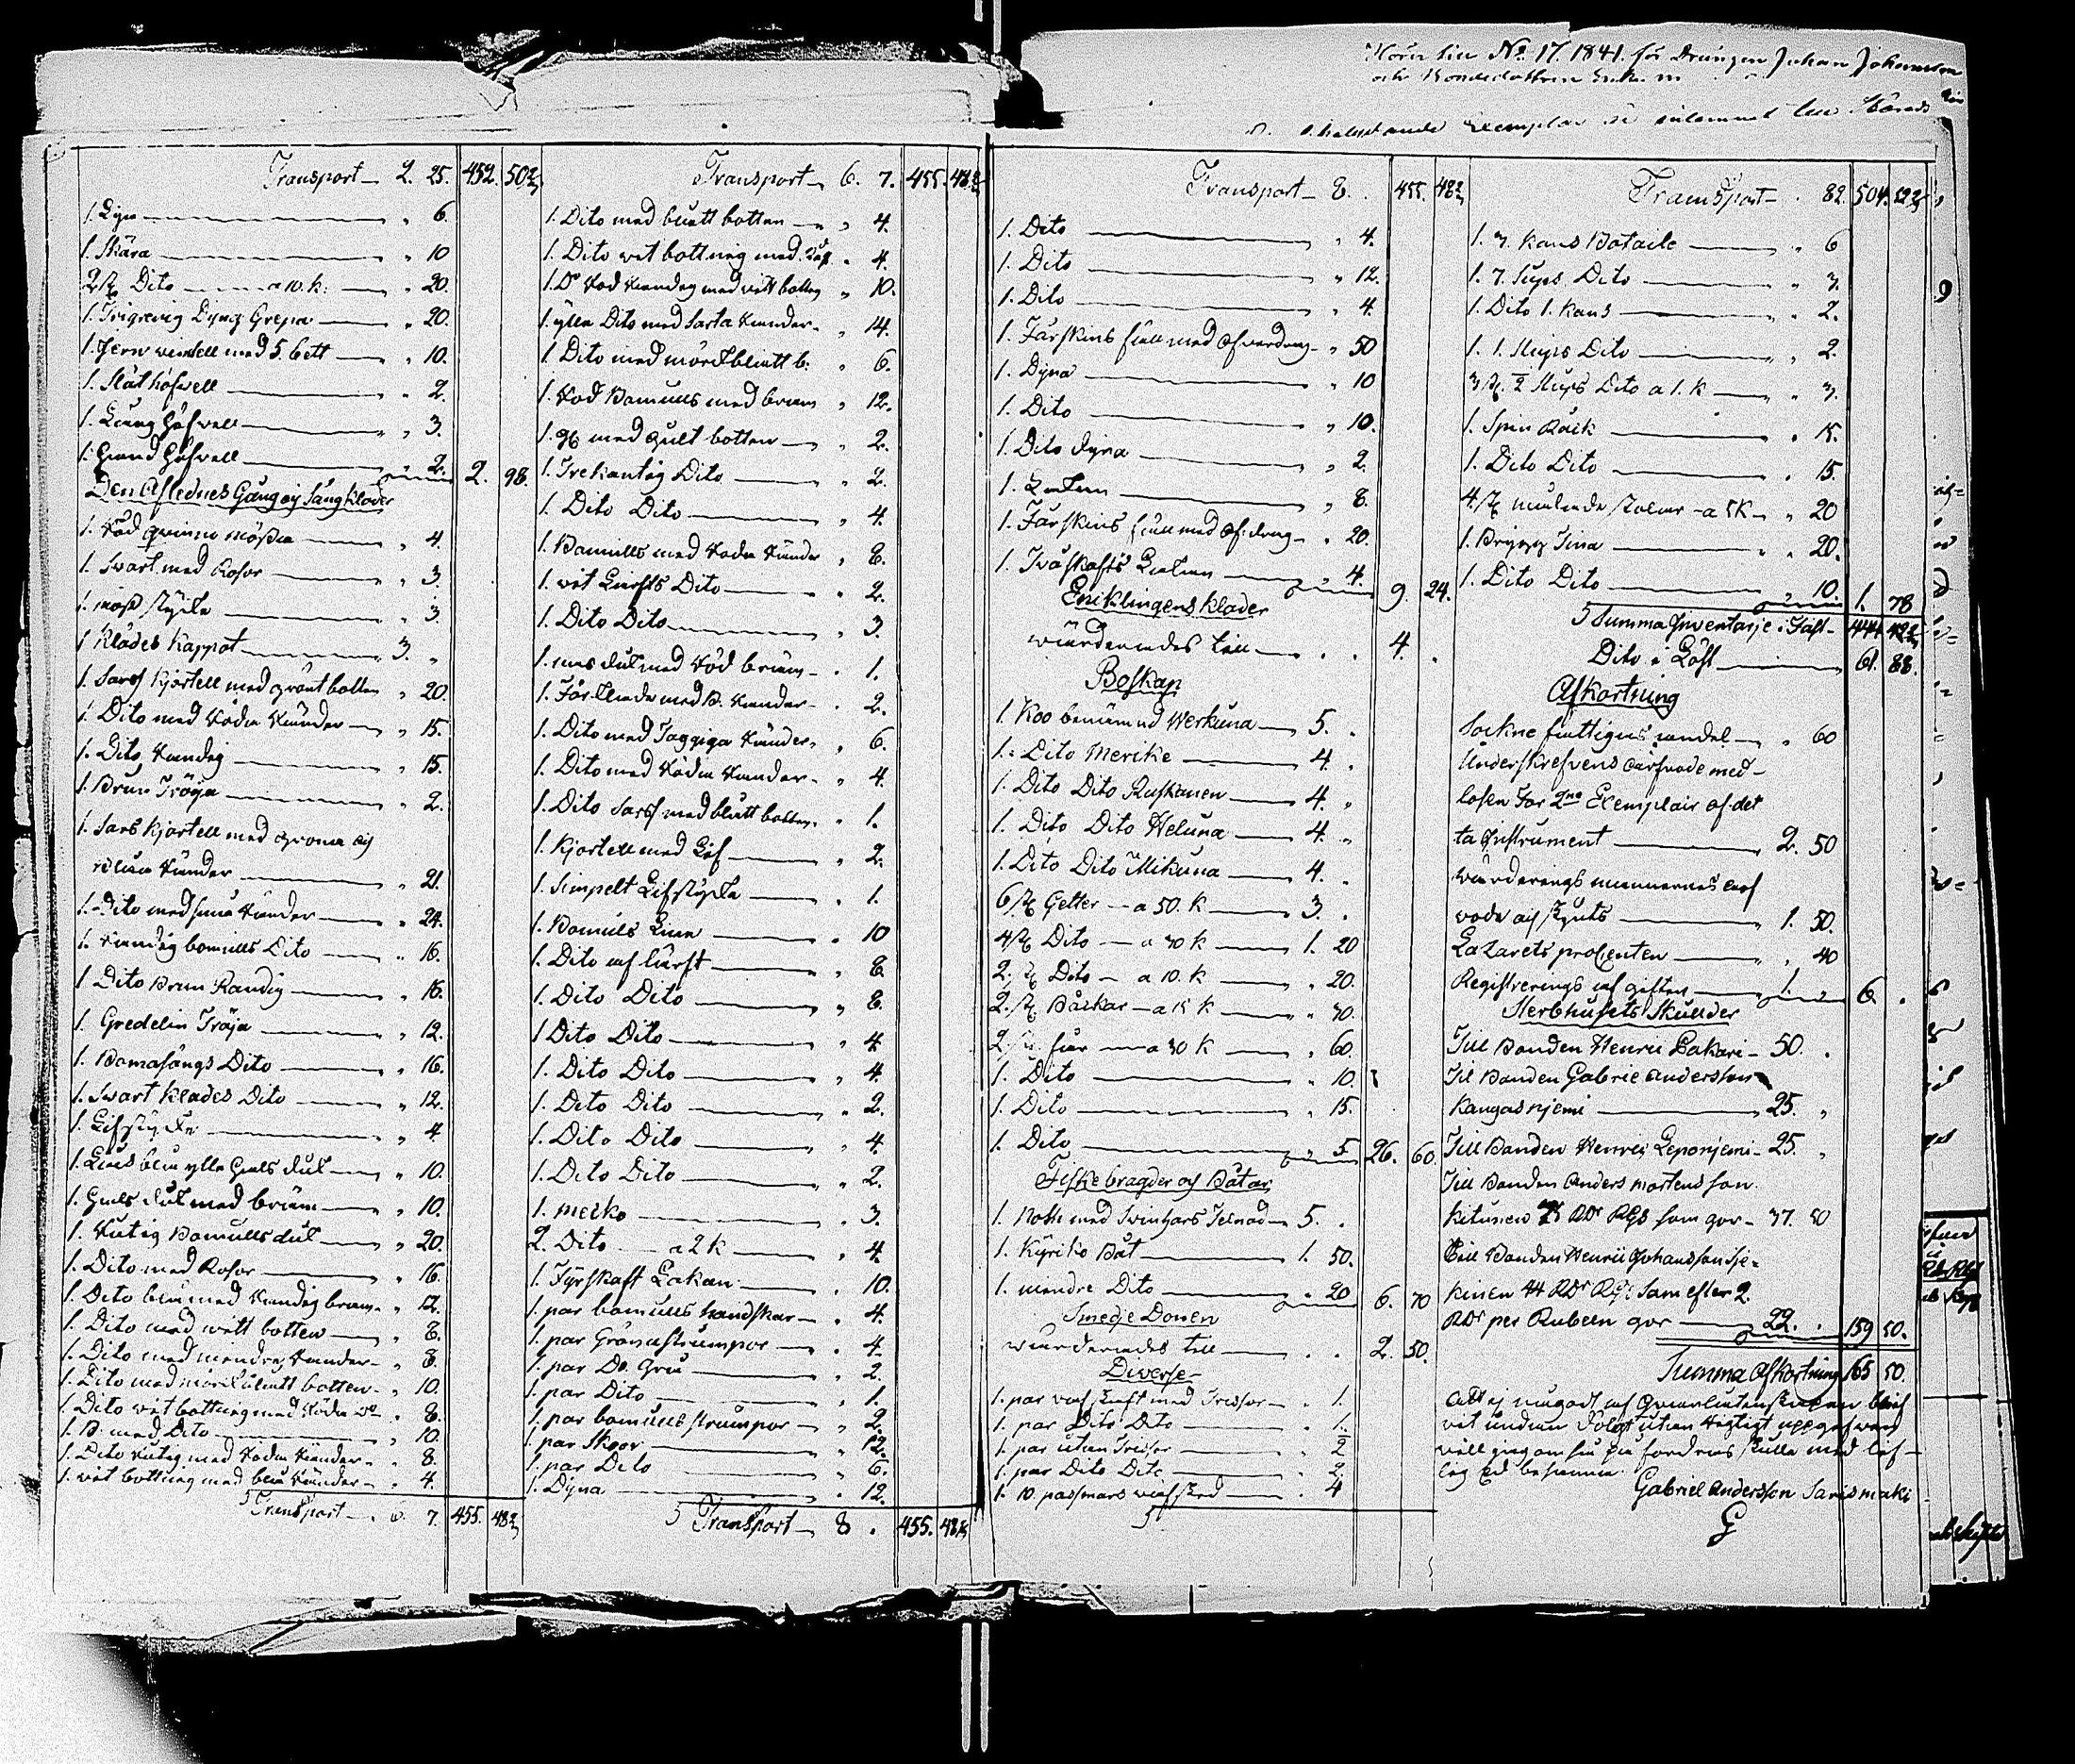 Hörer till No 17. 1841. för Drängen Johan Johansson
och Bondedottren
Exemplar är inlemnat till Härads
Transport 2. 25. 452. 50 2/7
1. Dyn " 6.
1. Skära " 10
2 st Dito a 10. k: " 20.
1. Trigrenig Dyng Grepa " 20.
1. Jern windell med 5. bett " 10.
1. Slät höfwell " 2.
1. Lång Höfwell " 3.
1. Grund Höfwell " 2. 2. 98.
Den Aflednes Gång og Sängkläder
1. Röd qwinno mössa " 4.
1. Swart med Rosor " 3.
1. möss stycke " 3.
1 Klädes Kappot 3. "
1. Sars Kjortell med grönt botten " 20.
1. Dito med Röda Ränder " 15.
1. Dito Randig " 15.
1. Brun Tröja " 2.
1. Sars Kjortell med gröna og
Ränder " 21.
1. Dito med små Ränder " 24.
1. Randig bomulls Dito " 16.
1 Dito Brun Randig " 16.
1. Gredelin Tröja " 12.
1. Bomasängs Dito " 16.
1. Swart Klädes Dito " 12.
1. Lifstycke " 4
1. blu ylle Hals duk " 10.
1. Hals duk med bräm " 10.
1. Rutig Bomulls duk " 20.
1. Dito med Rosor " 16.
1. Dito blå med Randig bräm " 12.
1. Dito med witt botten " 8.
1. Dito med mindre Ränder " 8.
1. Dito med mörkblått botten " 10.
1. Dito wit bottnig med Röda Do " 8.
1. D. med Dito " 10
1. Dito Rutig med Röda Ränder " 8.
1. wit bottnig med blå Ränder " 4.
Transport 6. 7. 455. 48 2/7
Transport 6. 7. 455. 48 2/7
1. Dito med blått botten " 4.
1. Dito wit bottnig med " 4.
1. Do Röd Randig med witt botten " 10.
1. ylle Dito med Swarta Ränder " 14.
1. Dito med mörkblått b: " 6.
1. Röd Bomulls med bräm " 12.
1. med gult botten " 2.
1. Trekantig Dito " 2.
1. Dito Dito " 4.
1. Bomulls med Röda Ränder " 8.
1. wit Lärfts Dito " 2.
1. Dito Dito " 3.
1. näs duk med Röd bräm " 1.
1. Förkläde med B. Ränder " 2.
1. Dito med Taggiga Ränder " 6.
1. Dito med Röda Ränder " 4.
1. Dito Sars med blått botten " 1.
1. Kjortell med Lif " 2.
1. Simpelt Lifstycke " 1.
1. Bomuls " 10
1. Dito af lärft " 8.
1. Dito Dito " 8.
1 Dito Dito " 4
1. Dito Dito " 4.
1. Dito Dito " 2.
1. Dito Dito " 4.
1. Dito Dito " 2.
1. mecko " 3.
2. Dito a 2 k " 4.
1. Fyrskaft Lakan " 10.
1. par bomulls handskar " 4.
1. par Gröna strumpor " 4.
1. par Do. Grå " 2.
1. par Dito " 1.
1. par bomulls strumpor " 2.
1. par Skoor " 12.
1. par Dito " 6.
1. Dyna " 12.
Transport 8 . 455. 48 2/7
Transport 8. . 455. 48 2/7
1. Dito " 4.
1. Dito " 12.
1. Dito " 4
1. Fårskins fäll med Öfverdrag " 50
1. Dyna " 10
1. Dito " 10.
1. Dito dyna " 2.
1. Lakan " 8.
1. Fårskins fäll med Öf: drag " 20.
1. Twåskafts Lakan " 4. 9. 24.
Enklingens kläder
wärderades till . . 4. .
Boskap
1. Koo benämnd Werkuna 5. .
1. Dito Merike 4. .
1. Dito Dito Ruskanen 4. "
1. Dito Dito Heluna 4. "
1. Dito Dito Mikuna 4. .
6 st Getter a 50. k 3. .
4 st Dito a 30 k 1. 20
2. st Dito a 10. k " 20.
2. st Båckar a 15 k " 30.
2 st får a 30 k " 60.
1. Dito " 10.
1. Dito " 15.
1. Dito " 5. 26. 60.
Fiskebragder og Båtar
1. Noth med 5. .
1. Kyrko Båt 1. 50.
1. mindre Dito " 20 6. 70
Smedje Donen
wärderades till . . 2. 50.
Diverse
1. par wafskaft med Trissor " 1.
1. par Dito Dito " 1.
1. par utan Trissor " 2
1. par Dito Dito " 2.
1. 10. passmars wafsked " 4
Transport . 82. 504. 52 2/7
1. 3. kans Botaile " 6
1. 7. Sups Dito " 3.
1. Dito 1. kans " 2.
1. 1. Stups Dito " 2.
3 st. 1/2 Stups Dito a 1. k " 3.
1. Spin Råck " 15.
1. Dito Dito " 15.
4. st målade stolar a 5 k " 20
1. Brygg Tina " 20.
1. Dito Dito " 10. 1. 78
Summa Inventarje i Fast 444. 42 2/7
Dito i Löst 61. 88.
Afkortning
Sockne fattigas andel " 60
Underskrefvens arfvode med
lösen För 2ne Exemplair af det
ta Instrument 2. 50
wärderings männernes arf
vode af Skjuts 1. 50.
Lazarets procenten " 40
Registrerings afgiften 1. " 6. .
Sterbhusets Skulder
Till Bonden Henric Lakari 50. .
Til Bonden Gabriel Andersson
Kangasnjemi 25. "
Till Bonden Henric Leponjemi 25. "
Till Bonden Anders Mortensson
Kitunen 75 RDr RGs som gör 37. 50
Till Bonden Henric Johansson
kinen 44 RDr RGs Som efter 2.
RDr per Rubeln gör 22. . 159 50.
Summa Afkortning 165 50.
Att ej något af blif
vit undan Dolgt utan Rigtigt uppgifwen
will jag om så på fordras skulle med lif
lig Ed besanna.
Gabriel Andersson Sarismäki
G